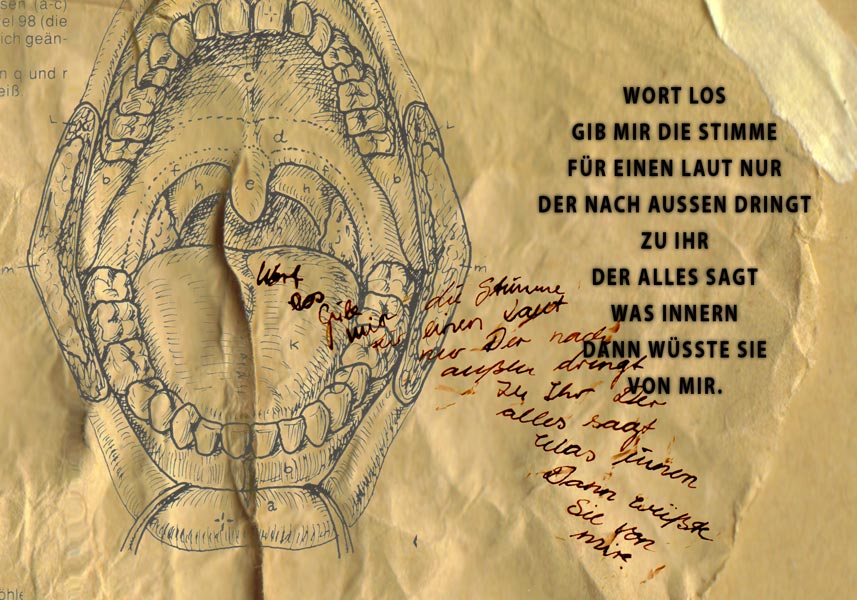 sen (a-c)
el 98 (die
ich geän-
n q und r
eiß.
c
d
L
L
f
h
h
f
e
b
b
m
m
k
b
a
WORT LOS
GIB MIR DIE STIMME
FÜR EINEN LAUT NUR
DER NACH AUSSEN DRINGT
ZU IHR
DER ALLES SAGT
WAS INNERN
DANN WÜSSTE SIE
VON MIR.
Wort
Los
Gibe
mir die Stimme
einen Laut
nur Der nach
außen dringt
Zu Ihr Der
alles sagt
Was innen
Dann wüßte
Sie von
mir.
öhle